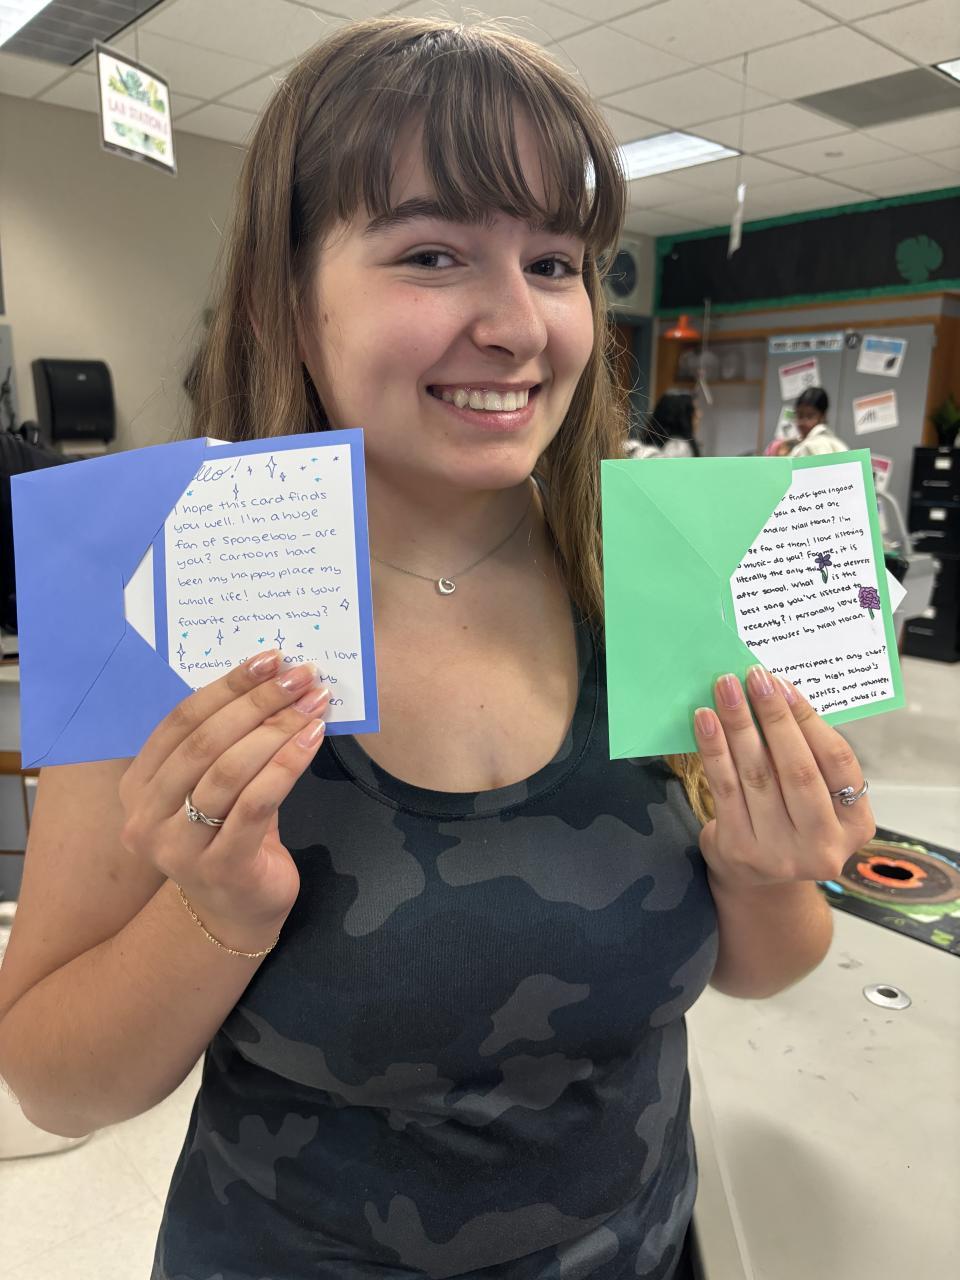 LAB STATION
llo!
I hope this card finds
you well. I'm a huge
fan of spongebob – are
you? Cartoons have
been my happy place my
whole life! What is your
favorite cartoon show?
speaking ons... I love
My
en
finds you in good
you a fan of One
and/or Niall Horan? I'm
ge fan of them! I love listening
music- do you? For me, it is
literally the only thing to destress
after school. What is the
best song you've listened to
recently? I personally love
Paper Houses by Niall Horan.
you participate in any clubs?
of my high school's
and volunteer
joining clubs is a